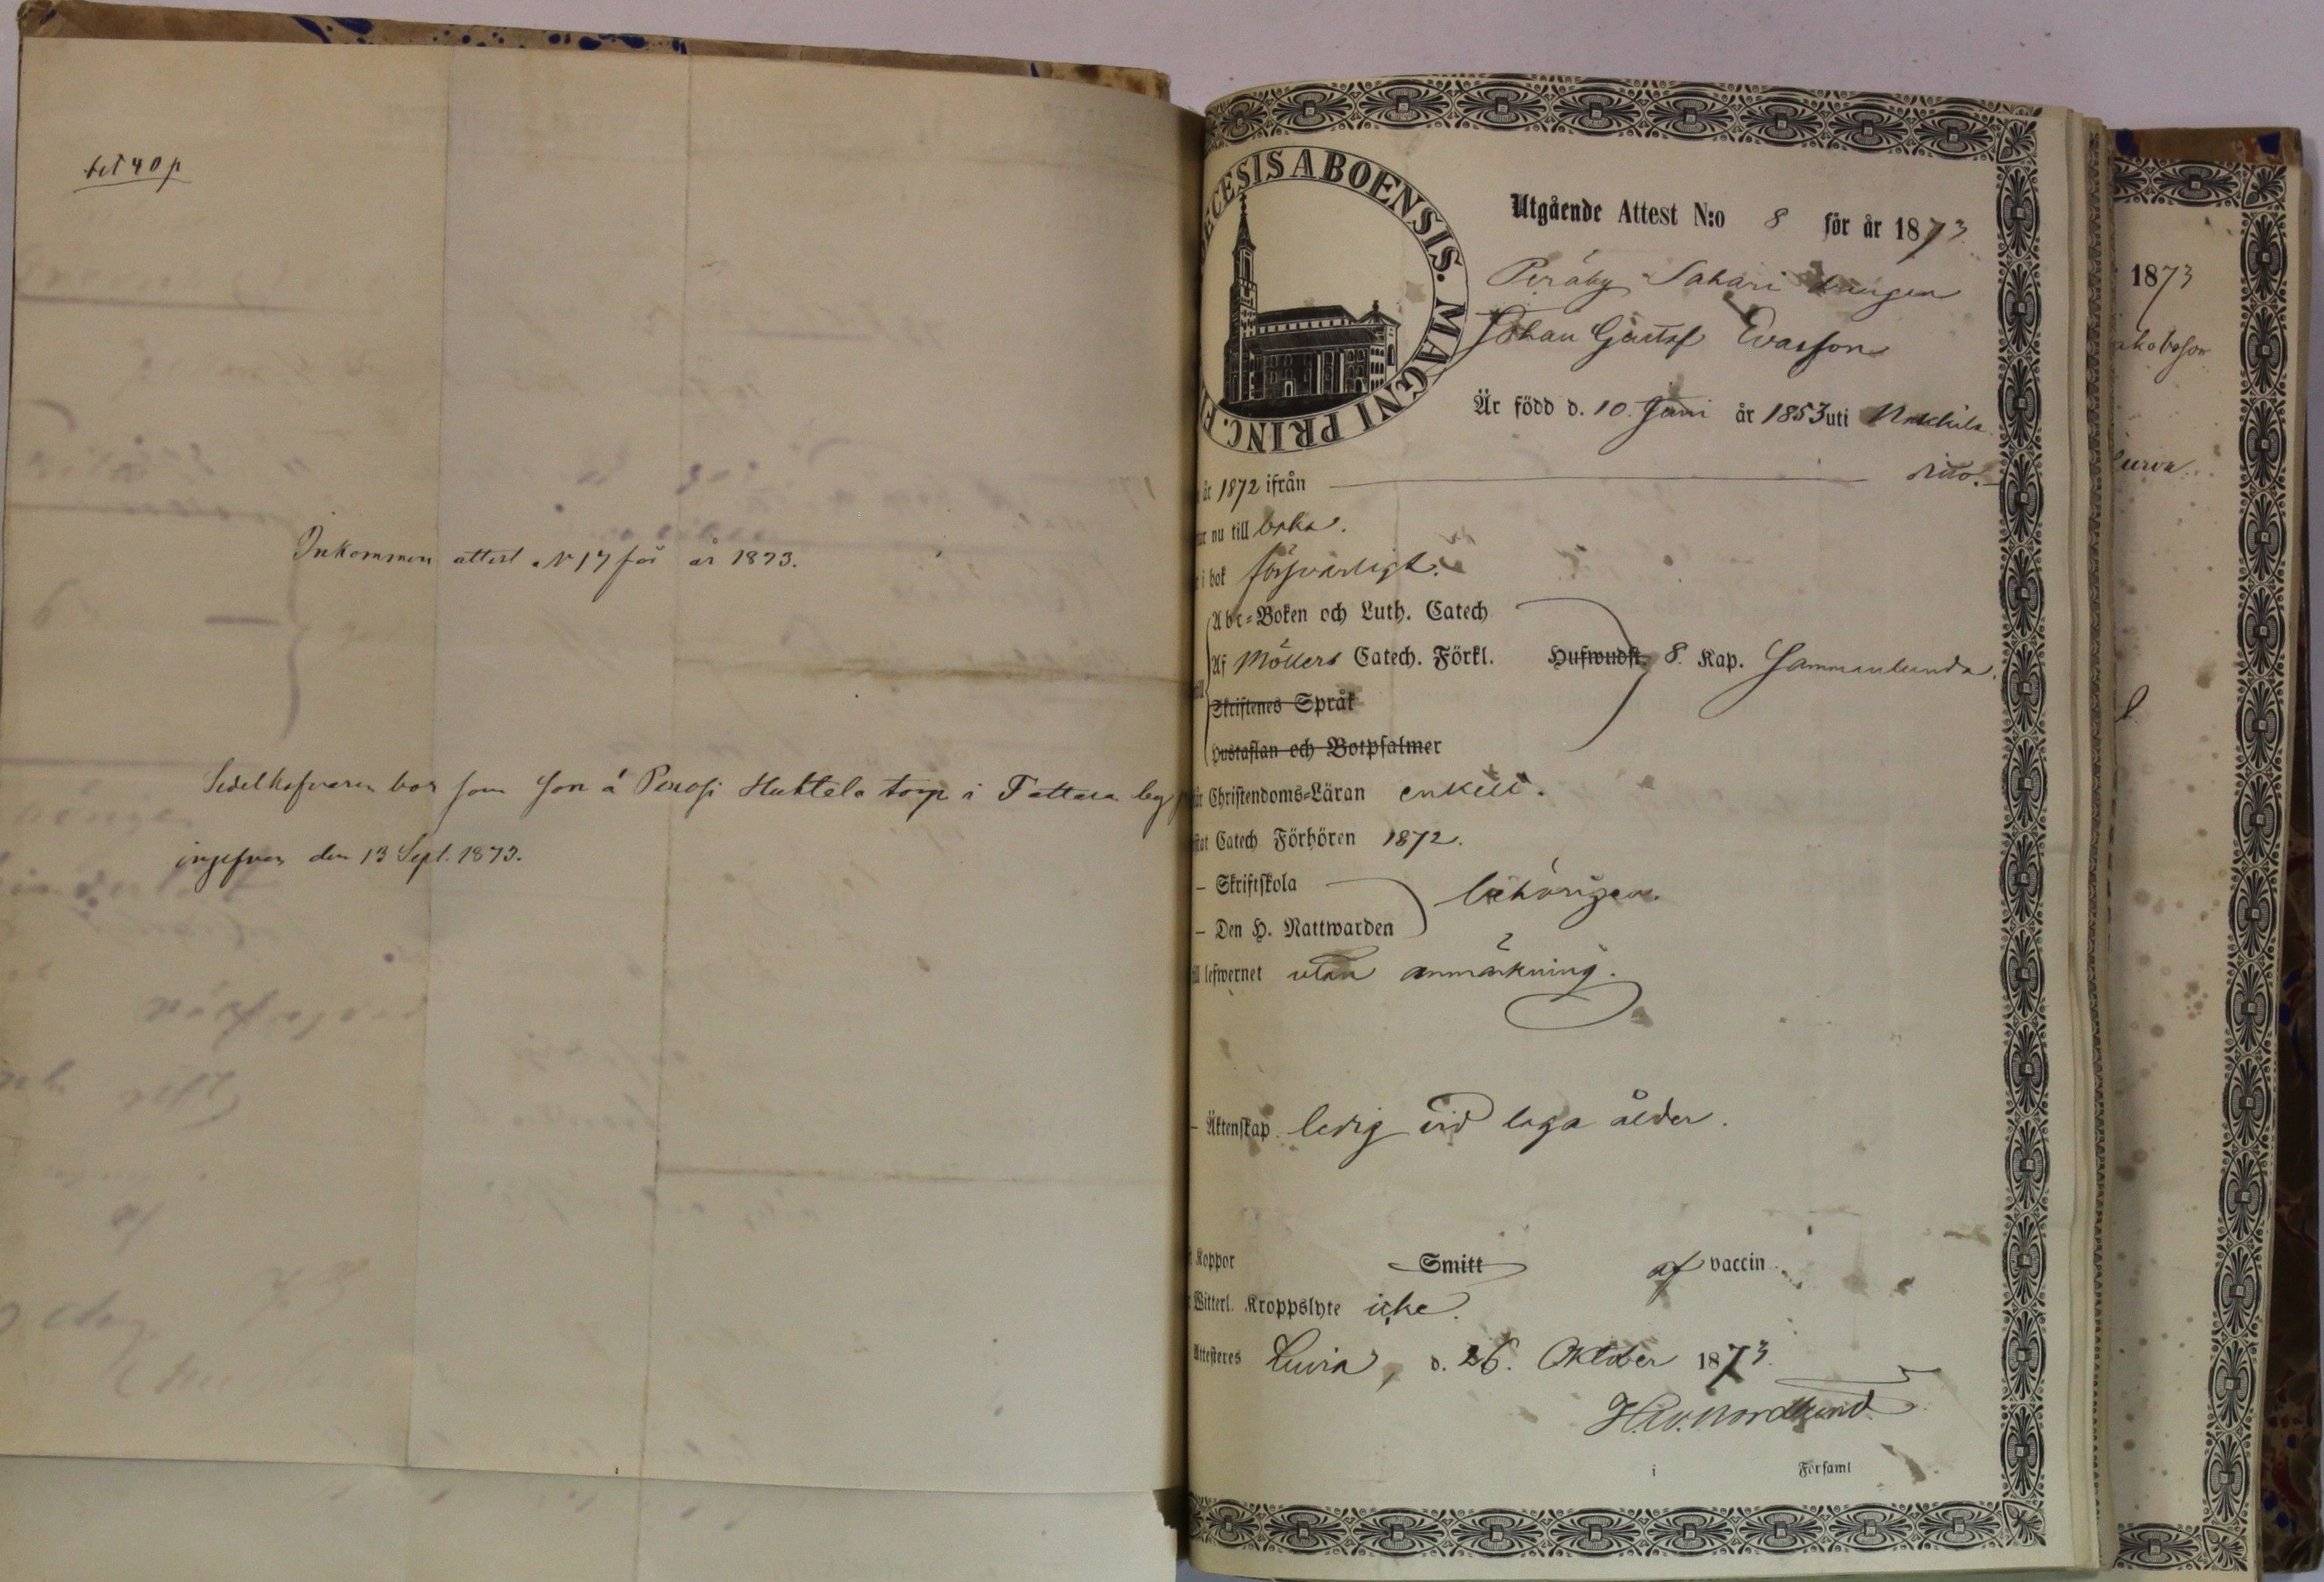 bet 40 p
Inkommen attest N 17 för år 1873.
Sedelhafvaren bor som son å Penssi Huhtela torp i Tattara by
ingifven den 13 Sept. 1873.
ECESIS ABOENSIS. MAGNI PRINC. FI
Utgående Attest N:o 8 för år 1873.
Peräby Sahari drängen
Johan Gustaf Evasson
Är född d. 10. Juni år 1853 uti Nakkila
år 1872 ifrån dito.
nu till baka.
i bok försvarligt.
Abc-Boken och Luth. Catech
Af Möllers Catech. Förkl. Hufwudst. 8. Kap. Sammanlunda.
Skriftenes Språk
Hustaflan och Botpsalmer
Christendoms-Läran enkelt.
Catech Förhören 1872.
– Skriftskola
behörigen.
– Den H. Nattwarden
lefwernet utan anmärkning.
– Äktenskap ledig vid laga ålder.
Koppor Smitt af vaccin
Witterl. Kroppslyte icke.
Attesteres Luvia, d. 26. Oktober 1873.
H. W. Nordlund
i Församl
1873
akobsson